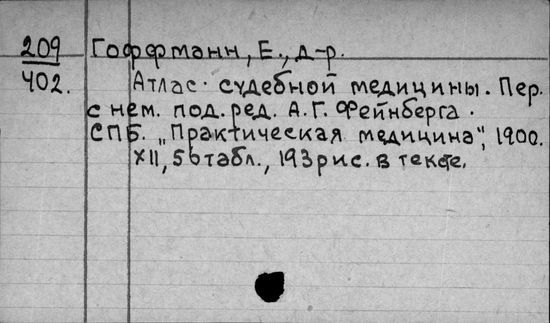 209 Гоффманн, Е., д-р.
402. Атлас судебной медицины. Пер.
с нем. под. ред. А. Г. Фейнберга.
СПБ. „Практическая медицина", 1900.
XII, 56 табл., 193 рис. в тексте.